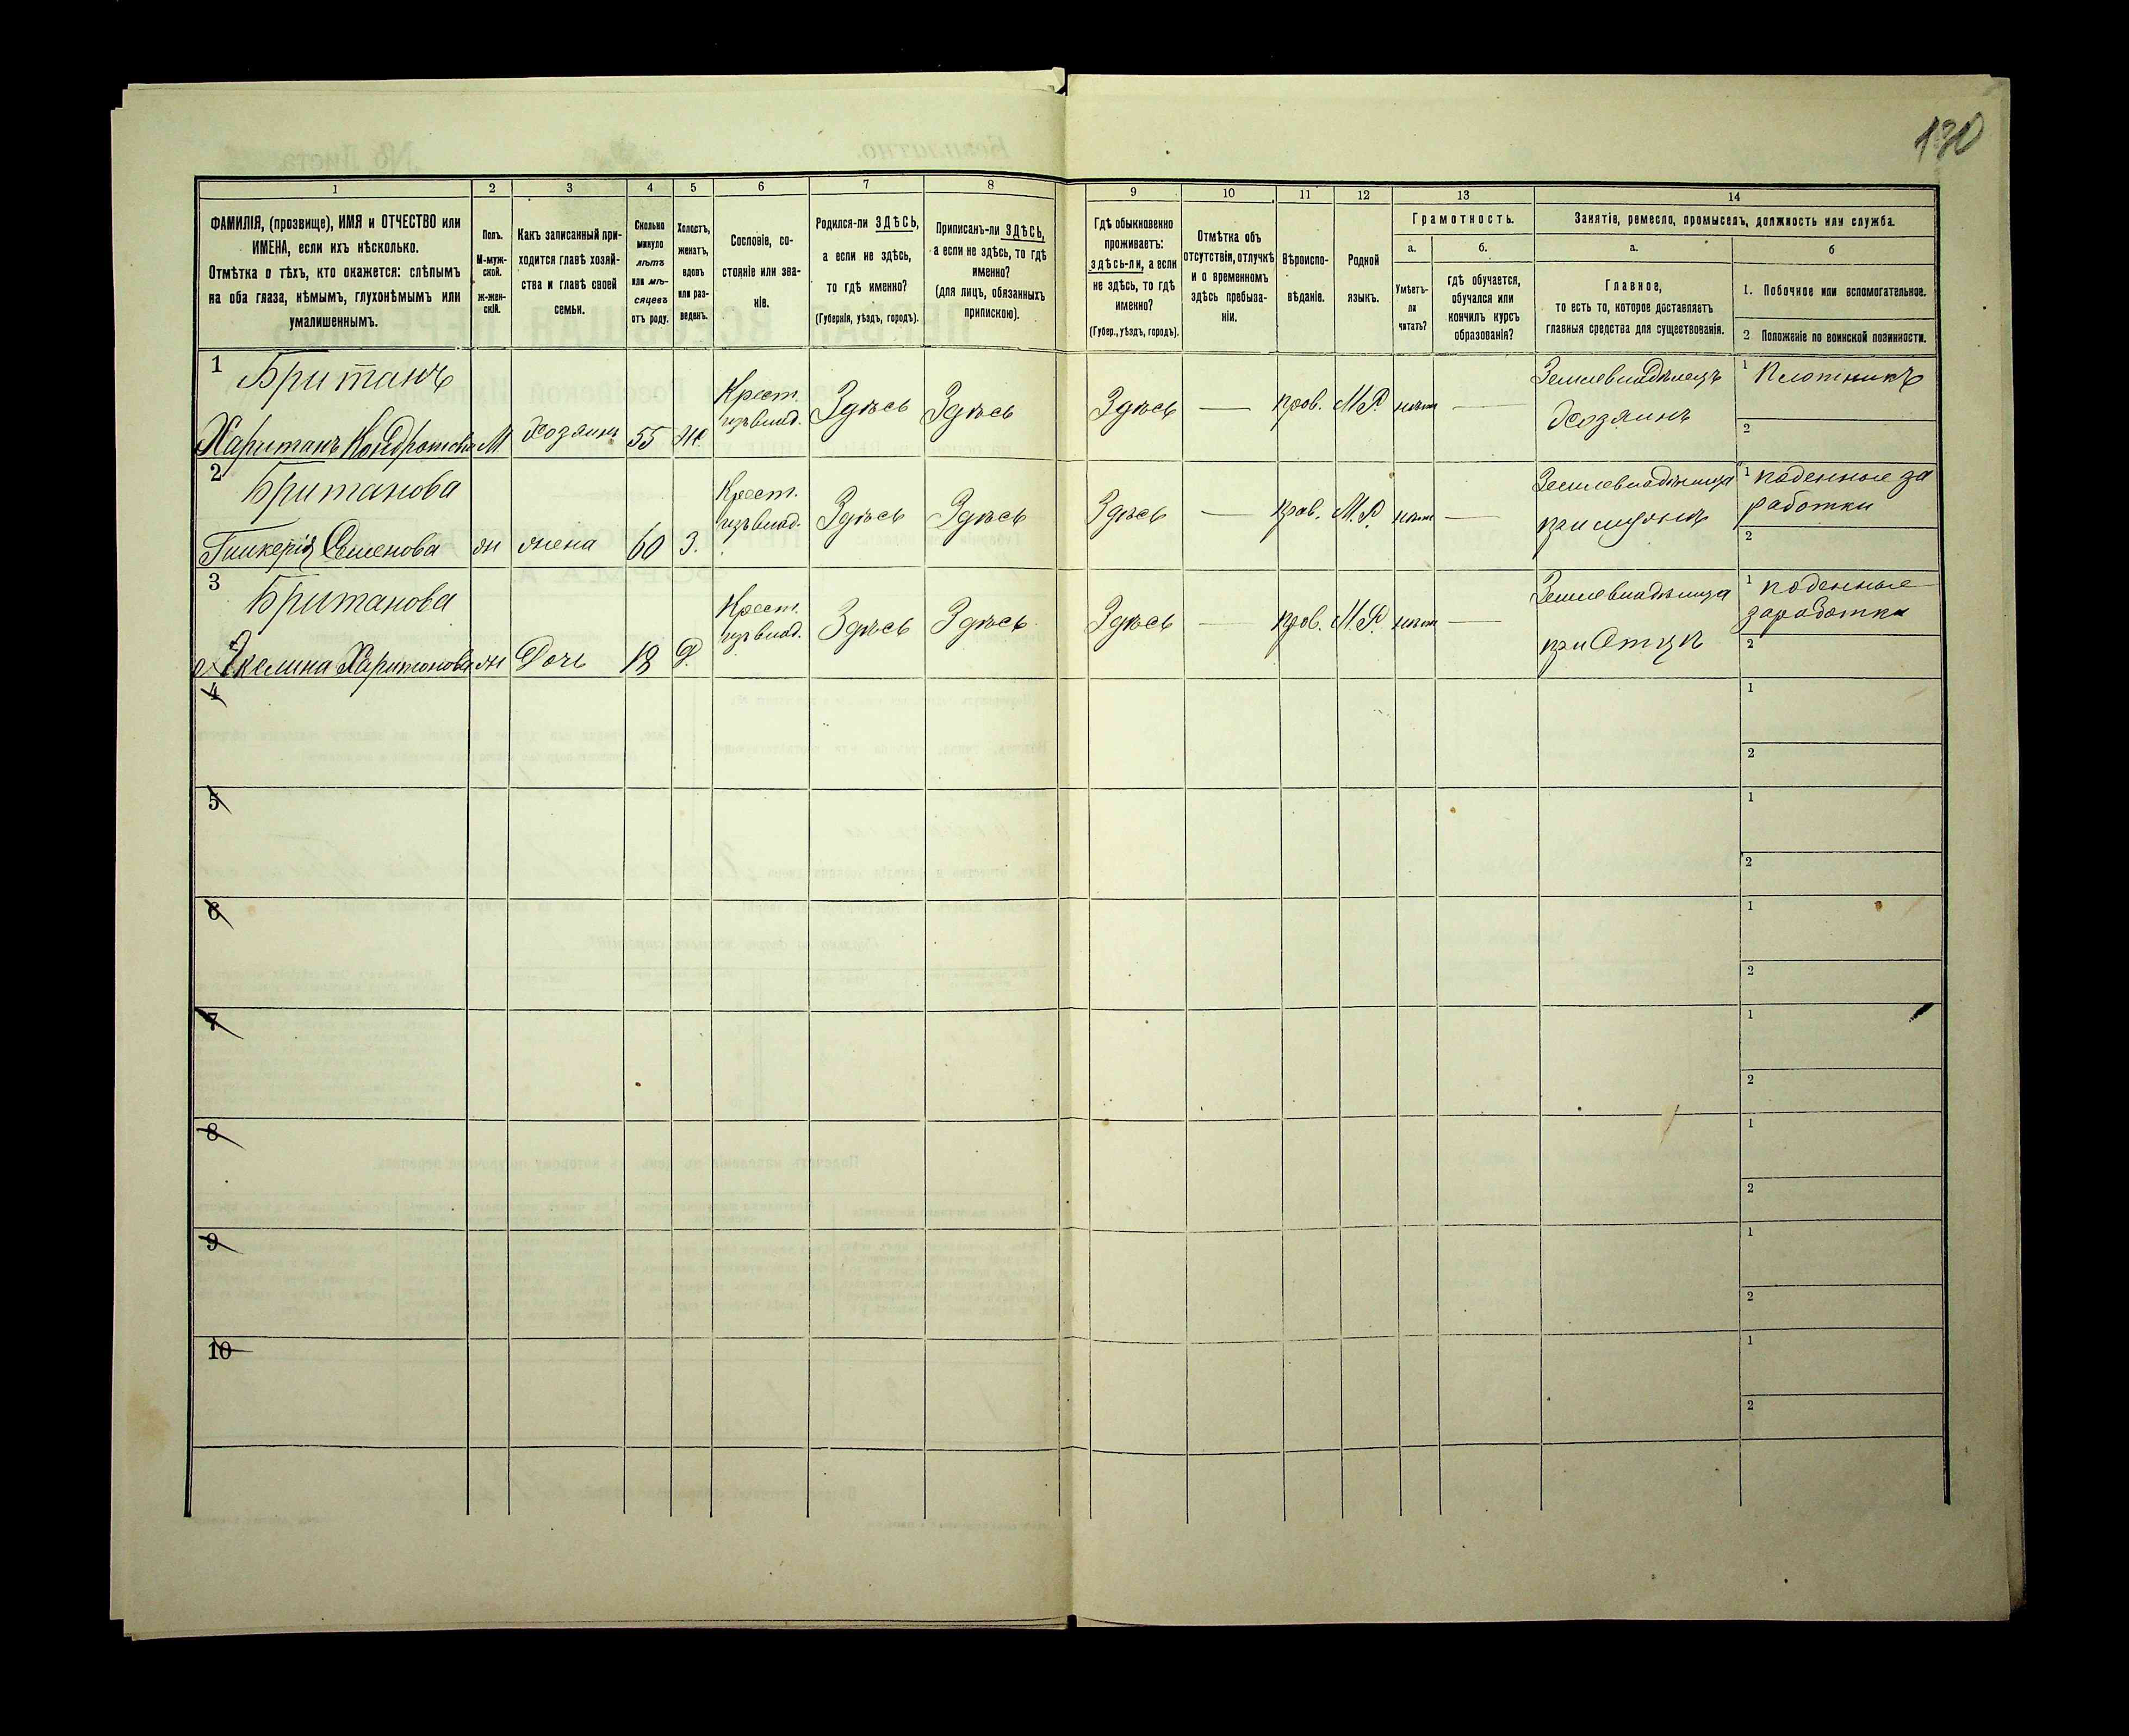 130
1 2 3 4 5 6 7 8 9 10 11 12 13 14
ФАМИЛІЯ, (прозвище), ИМЯ и ОТЧЕСТВО или
ИМЕНА, если ихъ нѣсколько.
Отмѣтка о тѣхъ, кто окажется: слѣпымъ
на оба глаза, нѣмымъ, глухонѣмымъ или
умалишеннымъ.
Полъ.
М-муж-
ской.
ж-жен-
скій.
Какъ записанный при-
ходится главѣ хозяй-
ства и главѣ своей
семьи.
Сколько
минуло
лѣтъ
или мѣ-
сяцевъ
отъ роду.
Холостъ,
женатъ,
вдовъ
или раз-
веденъ.
Сословіе, со-
стояніе или зва-
ніе.
Родился-ли ЗДѢСЬ,
а если не здѣсь,
то гдѣ именно?
(Губернія, уѣздъ, городъ).
Приписанъ-ли ЗДѢСЬ,
а если не здѣсь, то гдѣ
именно?
(для лицъ, обязанныхъ
припискою).
Гдѣ обыкновенно
проживаетъ:
здѣсь-ли, а если
не здѣсь, то гдѣ
именно?
(Губер., уѣздъ, городъ).
Отмѣтка объ
отсутствіи, отлучкѣ
и о временномъ
здѣсь пребыва-
ніи.
Вѣроиспо-
вѣданіе.
Родной
языкъ.
Грамотность.
а.
Умѣетъ-
ли
читать?
б.
гдѣ обучается,
обучался или
кончилъ курсъ
образованія?
Занятіе, ремесло, промыселъ, должность или служба.
а.
Главное,
то есть то, которое доставляетъ
главныя средства для существованія.
б
1. Побочное или вспомогательное.
2 Положеніе по воинской повинности.
1 Британъ
Хаританъ Кондратовъ М Хозяинъ 55 Ж
Крест.
изъ влад.
Здѣсь Здѣсь Здѣсь — прав. М.Р. нѣт —
Землевладѣлецъ
Хозяинъ
1 Плотникъ
2
2 Британова
Гликерія Семенова ж жена 60 З.
Крест.
изъ влад.
Здѣсь Здѣсь Здѣсь — прав. М.Р. нѣт —
Землевладѣлица
при мужѣ
1 поденные за
работки
2
3 Британова
Акелина Харитонова ж Дочь 18 Д.
Крест.
изъ влад.
Здѣсь Здѣсь Здѣсь — прав. М.Р. нѣт —
Землевладѣлица
при Отцѣ
1 поденные
заработки
2
4 1
2
5 1
2
6 1
2
7 1
2
8 1
2
9 1
2
10 1
2